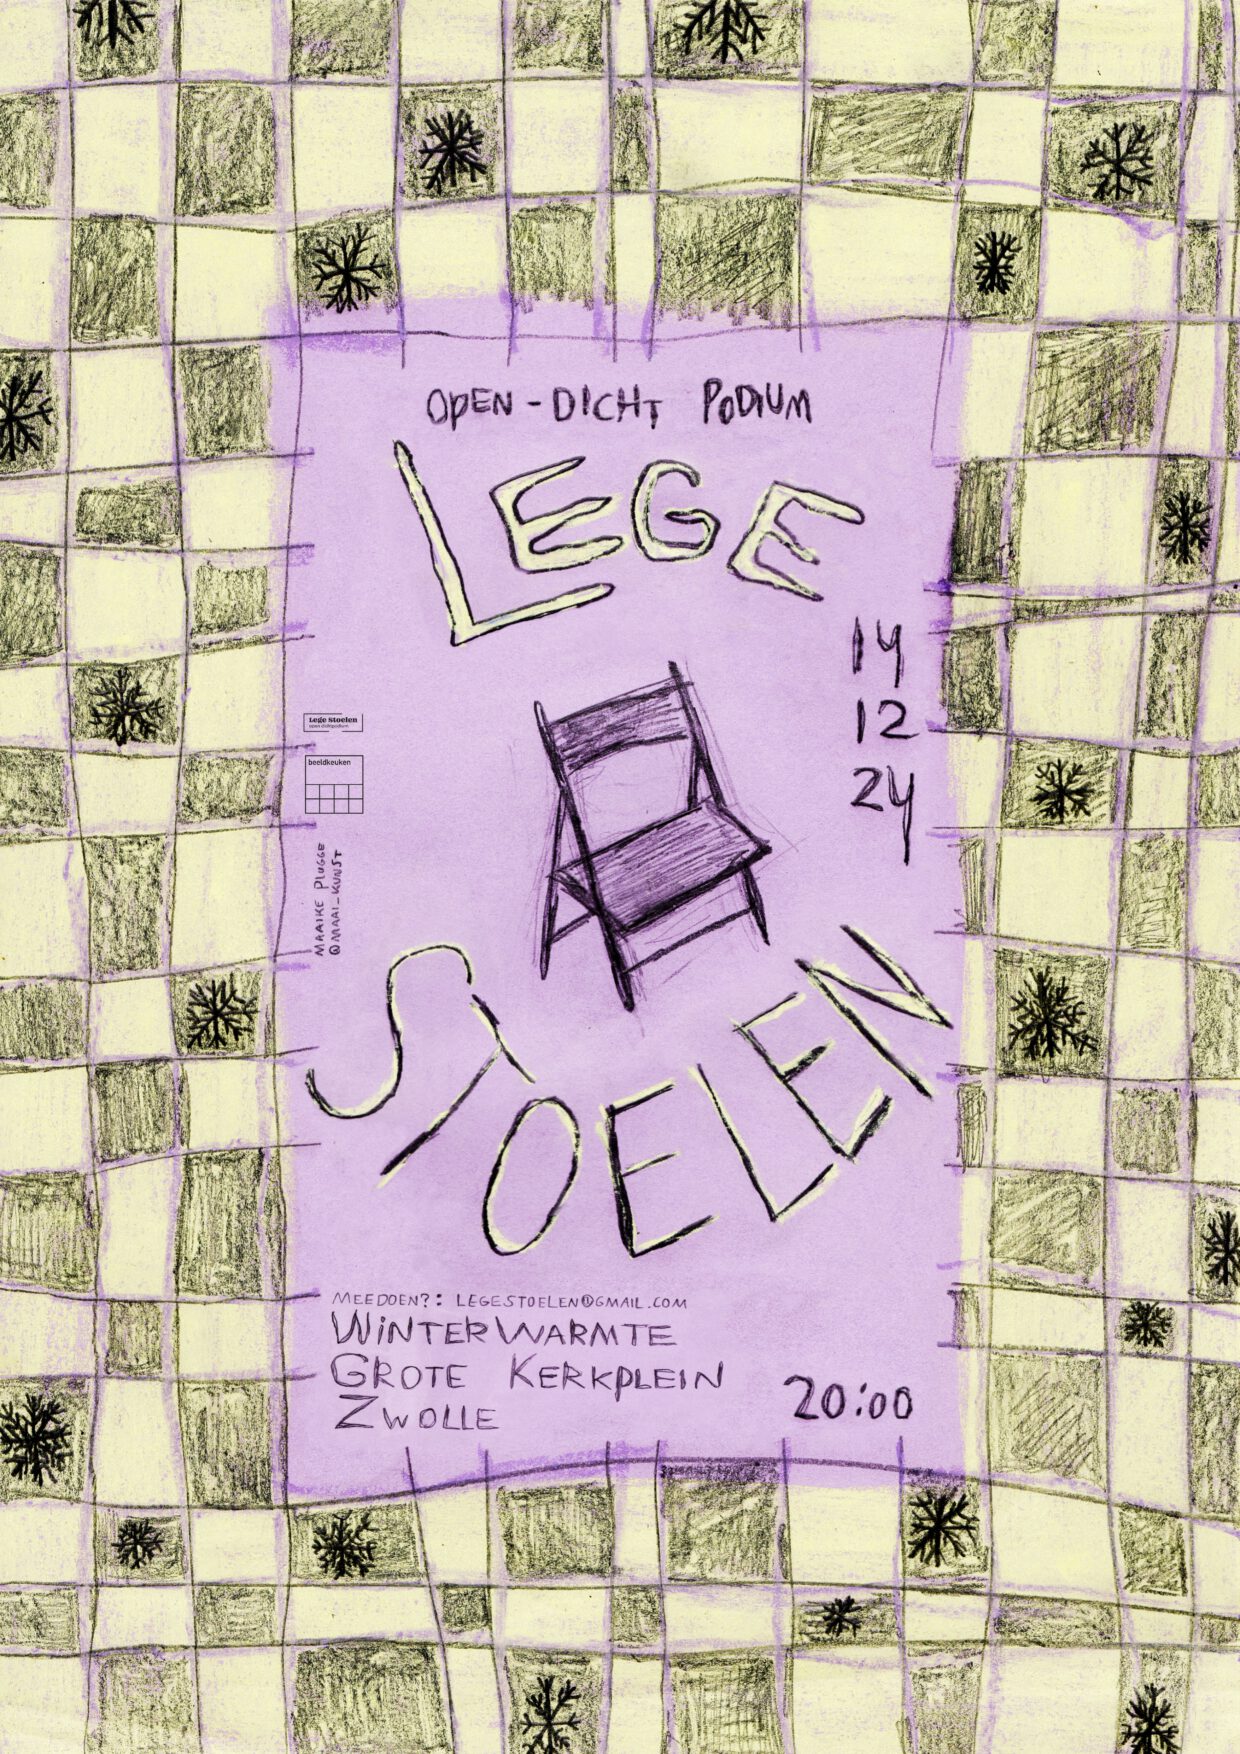 OPEN-DICHT PODIUM
LEGE
14
12
24
Lege Stoelen
open dichtpodium
beeldkeuken
MAAIKE PLUGGE
@MAAI_KUNST
STOELEN
MEEDOEN?: LEGESTOELEN@GMAIL.COM
WINTERWARMTE
GROTE KERKPLEIN
ZWOLLE
20:00